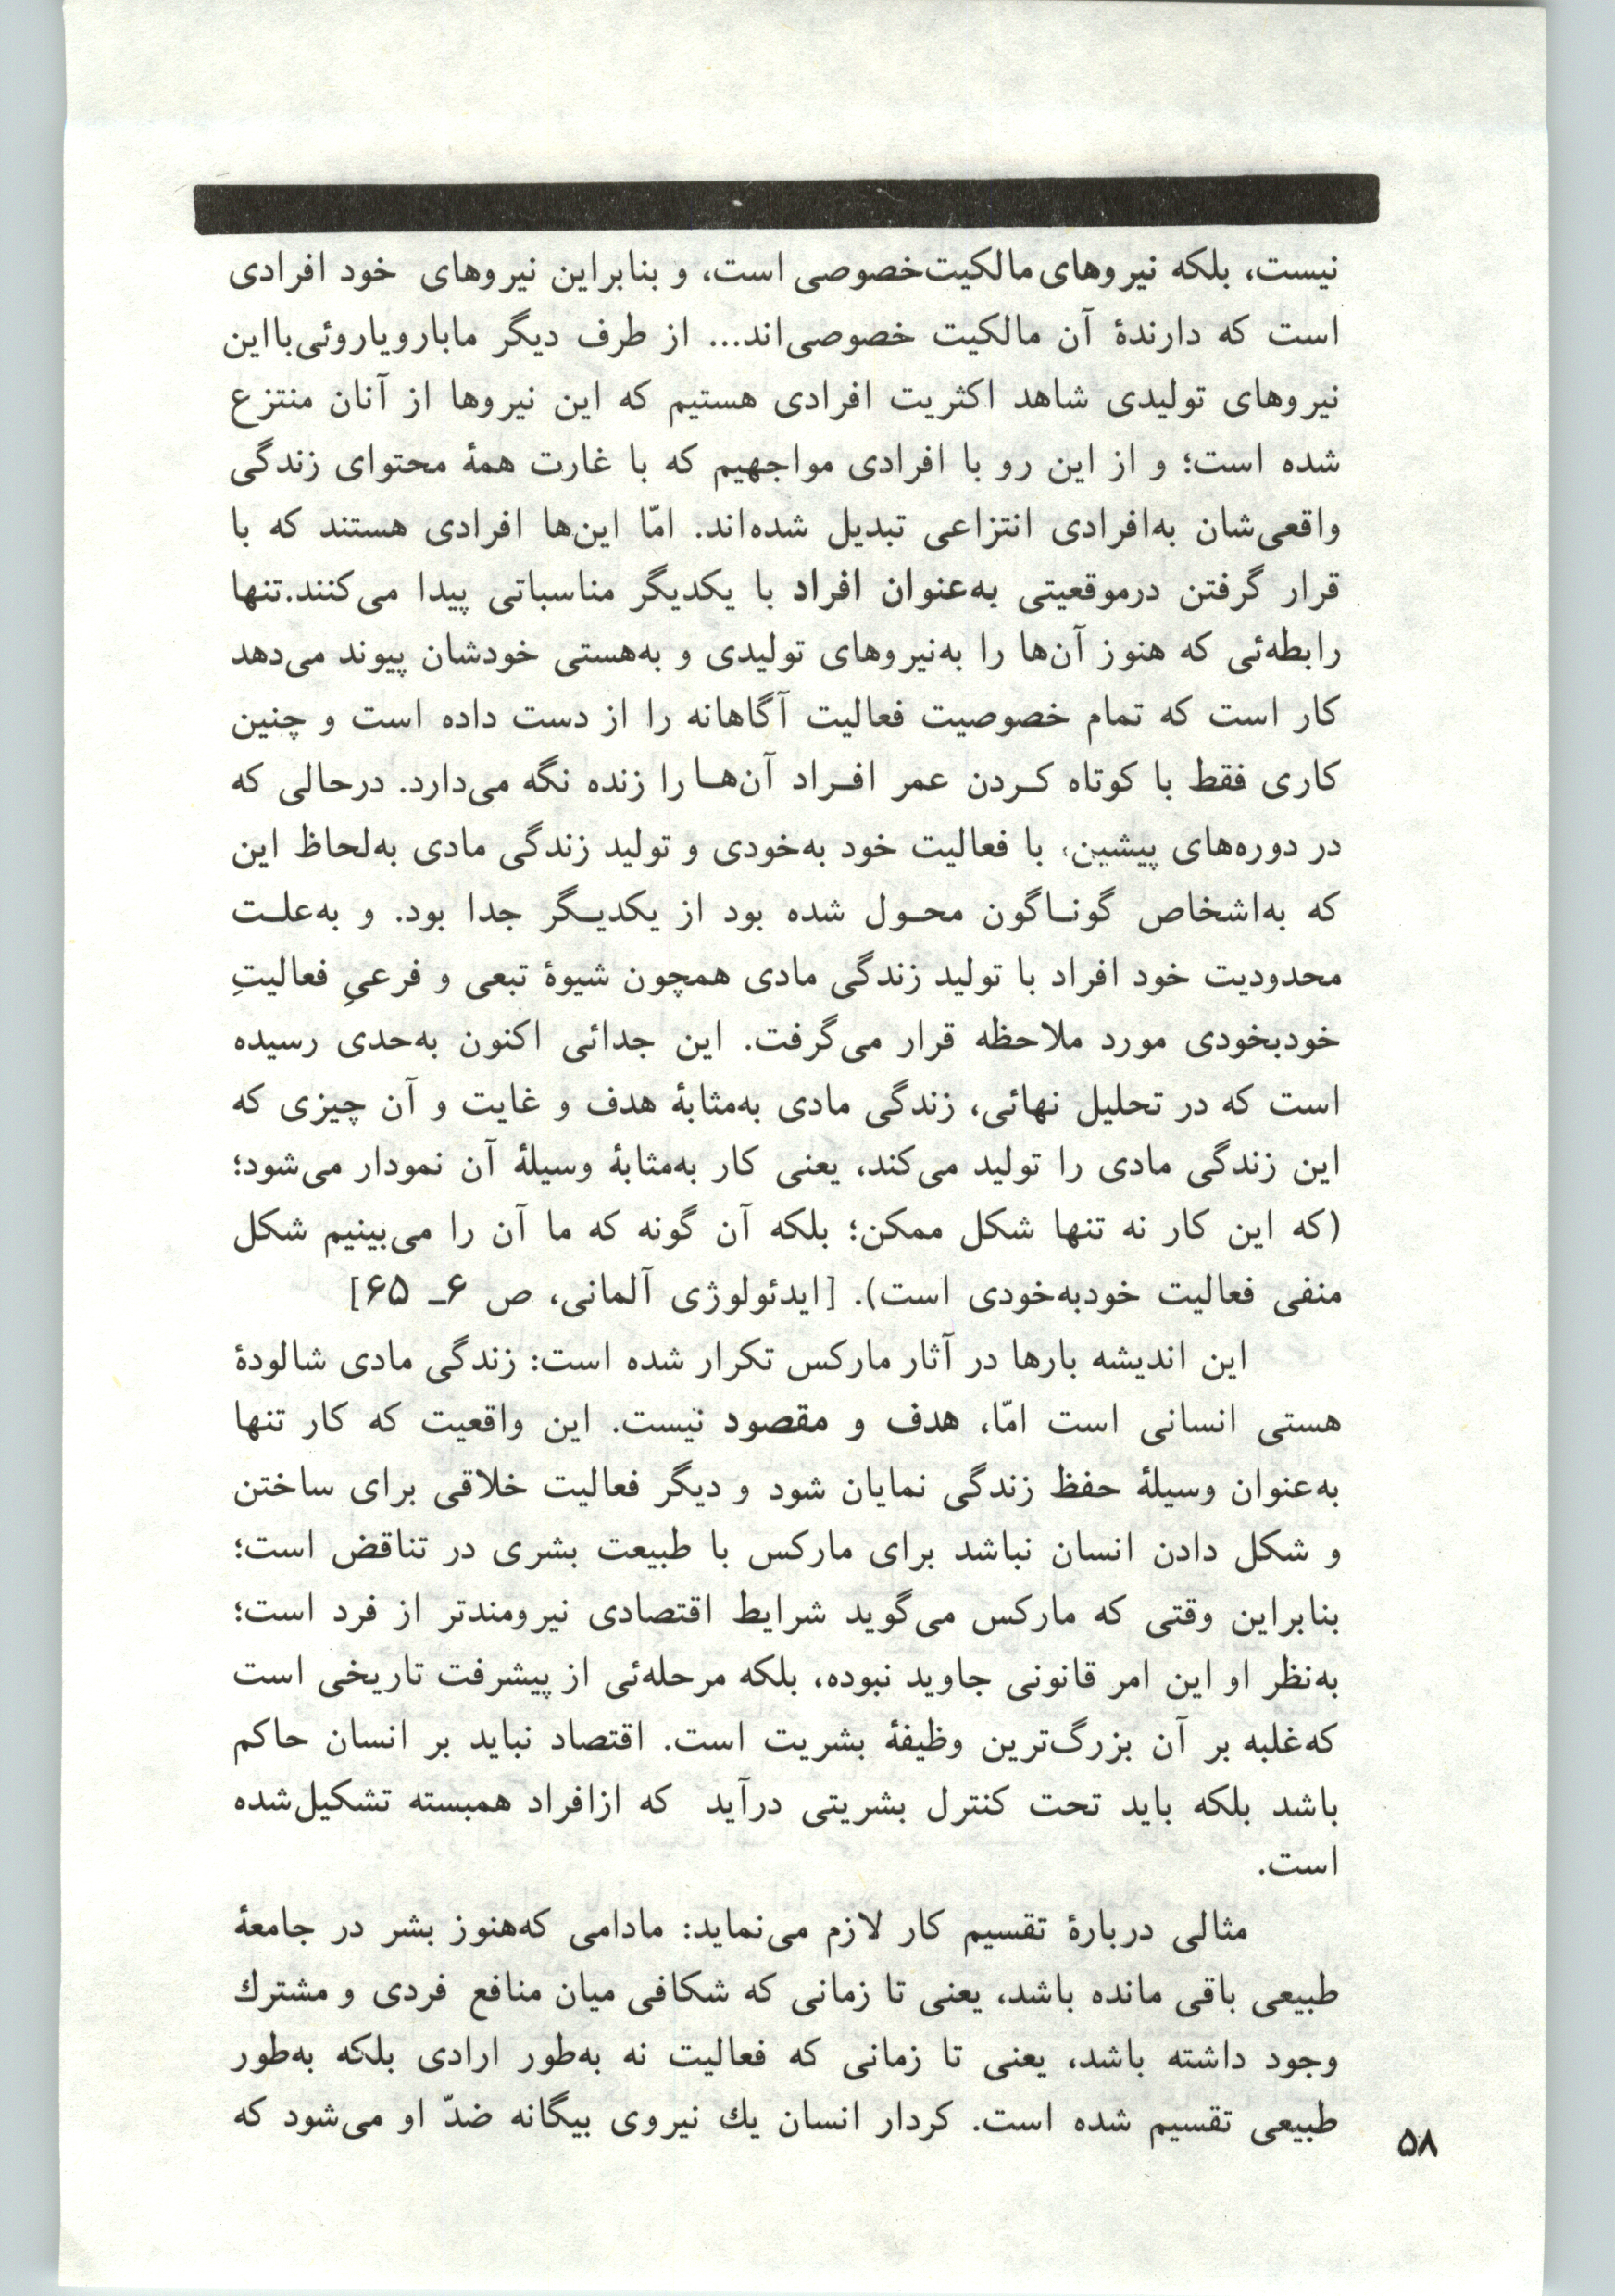 نیست، بلکه نیروهای مالکیت‌خصوصی است، و بنابراین نیروهای خود افرادی
است که دارندۀ آن مالکیت خصوصی‌اند... از طرف دیگر مابارویاروئی‌بااین
نیروهای تولیدی شاهد اکثریت افرادی هستیم که این نیروها از آنان منتزع
شده است؛ و از این رو با افرادی مواجهیم که با غارت همۀ محتوای زندگی
واقعی‌شان به‌افرادی انتزاعی تبدیل شده‌اند. امّا این‌ها افرادی هستند که با
قرار گرفتن درموقعیتی به‌عنوان افراد با یکدیگر مناسباتی پیدا می‌کنند.تنها
رابطه‌ئی که هنوز آن‌ها را به‌نیروهای تولیدی و به‌هستی خودشان پیوند می‌دهد
کار است که تمام خصوصیت فعالیت آگاهانه را از دست داده است و چنین
کاری فقط با کوتاه کـردن عمر افـراد آن‌هـا را زنده نگه می‌دارد. درحالی که
در دوره‌های پیشین، با فعالیت خود به‌خودی و تولید زندگی مادی به‌لحاظ این
که به‌اشخاص گونـاگون محـول شده بود از یکدیـگر جدا بود. و به‌علـت
محدودیت خود افراد با تولید زندگی مادی همچون شیوۀ تبعی و فرعیِ فعالیتِ
خودبخودی مورد ملاحظه قرار می‌گرفت. این جدائی اکنون به‌حدی رسیده
است که در تحلیل نهائی، زندگی مادی به‌مثابۀ هدف و غایت و آن چیزی که
این زندگی مادی را تولید می‌کند، یعنی کار به‌مثابۀ وسیلۀ آن نمودار می‌شود؛
(که این کار نه تنها شکل ممکن؛ بلکه آن گونه که ما آن را می‌بینیم شکل
منفی فعالیت خودبه‌خودی است). [ایدئولوژی آلمانی، ص ۶ـ ۶۵]
این اندیشه بارها در آثار مارکس تکرار شده است: زندگی مادی شالودۀ
هستی انسانی است امّا، هدف و مقصود نیست. این واقعیت که کار تنها
به‌عنوان وسیلۀ حفظ زندگی نمایان شود و دیگر فعالیت خلاقی برای ساختن
و شکل دادن انسان نباشد برای مارکس با طبیعت بشری در تناقض است؛
بنابراین وقتی که مارکس می‌گوید شرایط اقتصادی نیرومندتر از فرد است؛
به‌نظر او این امر قانونی جاوید نبوده، بلکه مرحله‌ئی از پیشرفت تاریخی است
که‌غلبه بر آن بزرگ‌ترین وظیفۀ بشریت است. اقتصاد نباید بر انسان حاکم
باشد بلکه باید تحت کنترل بشریتی درآید که ازافراد همبسته تشکیل‌شده
است.
مثالی دربارۀ تقسیم کار لازم می‌نماید: مادامی که‌هنوز بشر در جامعۀ
طبیعی باقی مانده باشد، یعنی تا زمانی که شکافی میان منافع فردی و مشترك
وجود داشته باشد، یعنی تا زمانی که فعالیت نه به‌طور ارادی بلکه به‌طور
طبیعی تقسیم شده است. کردار انسان یك نیروی بیگانه ضدّ او می‌شود که
۵۸